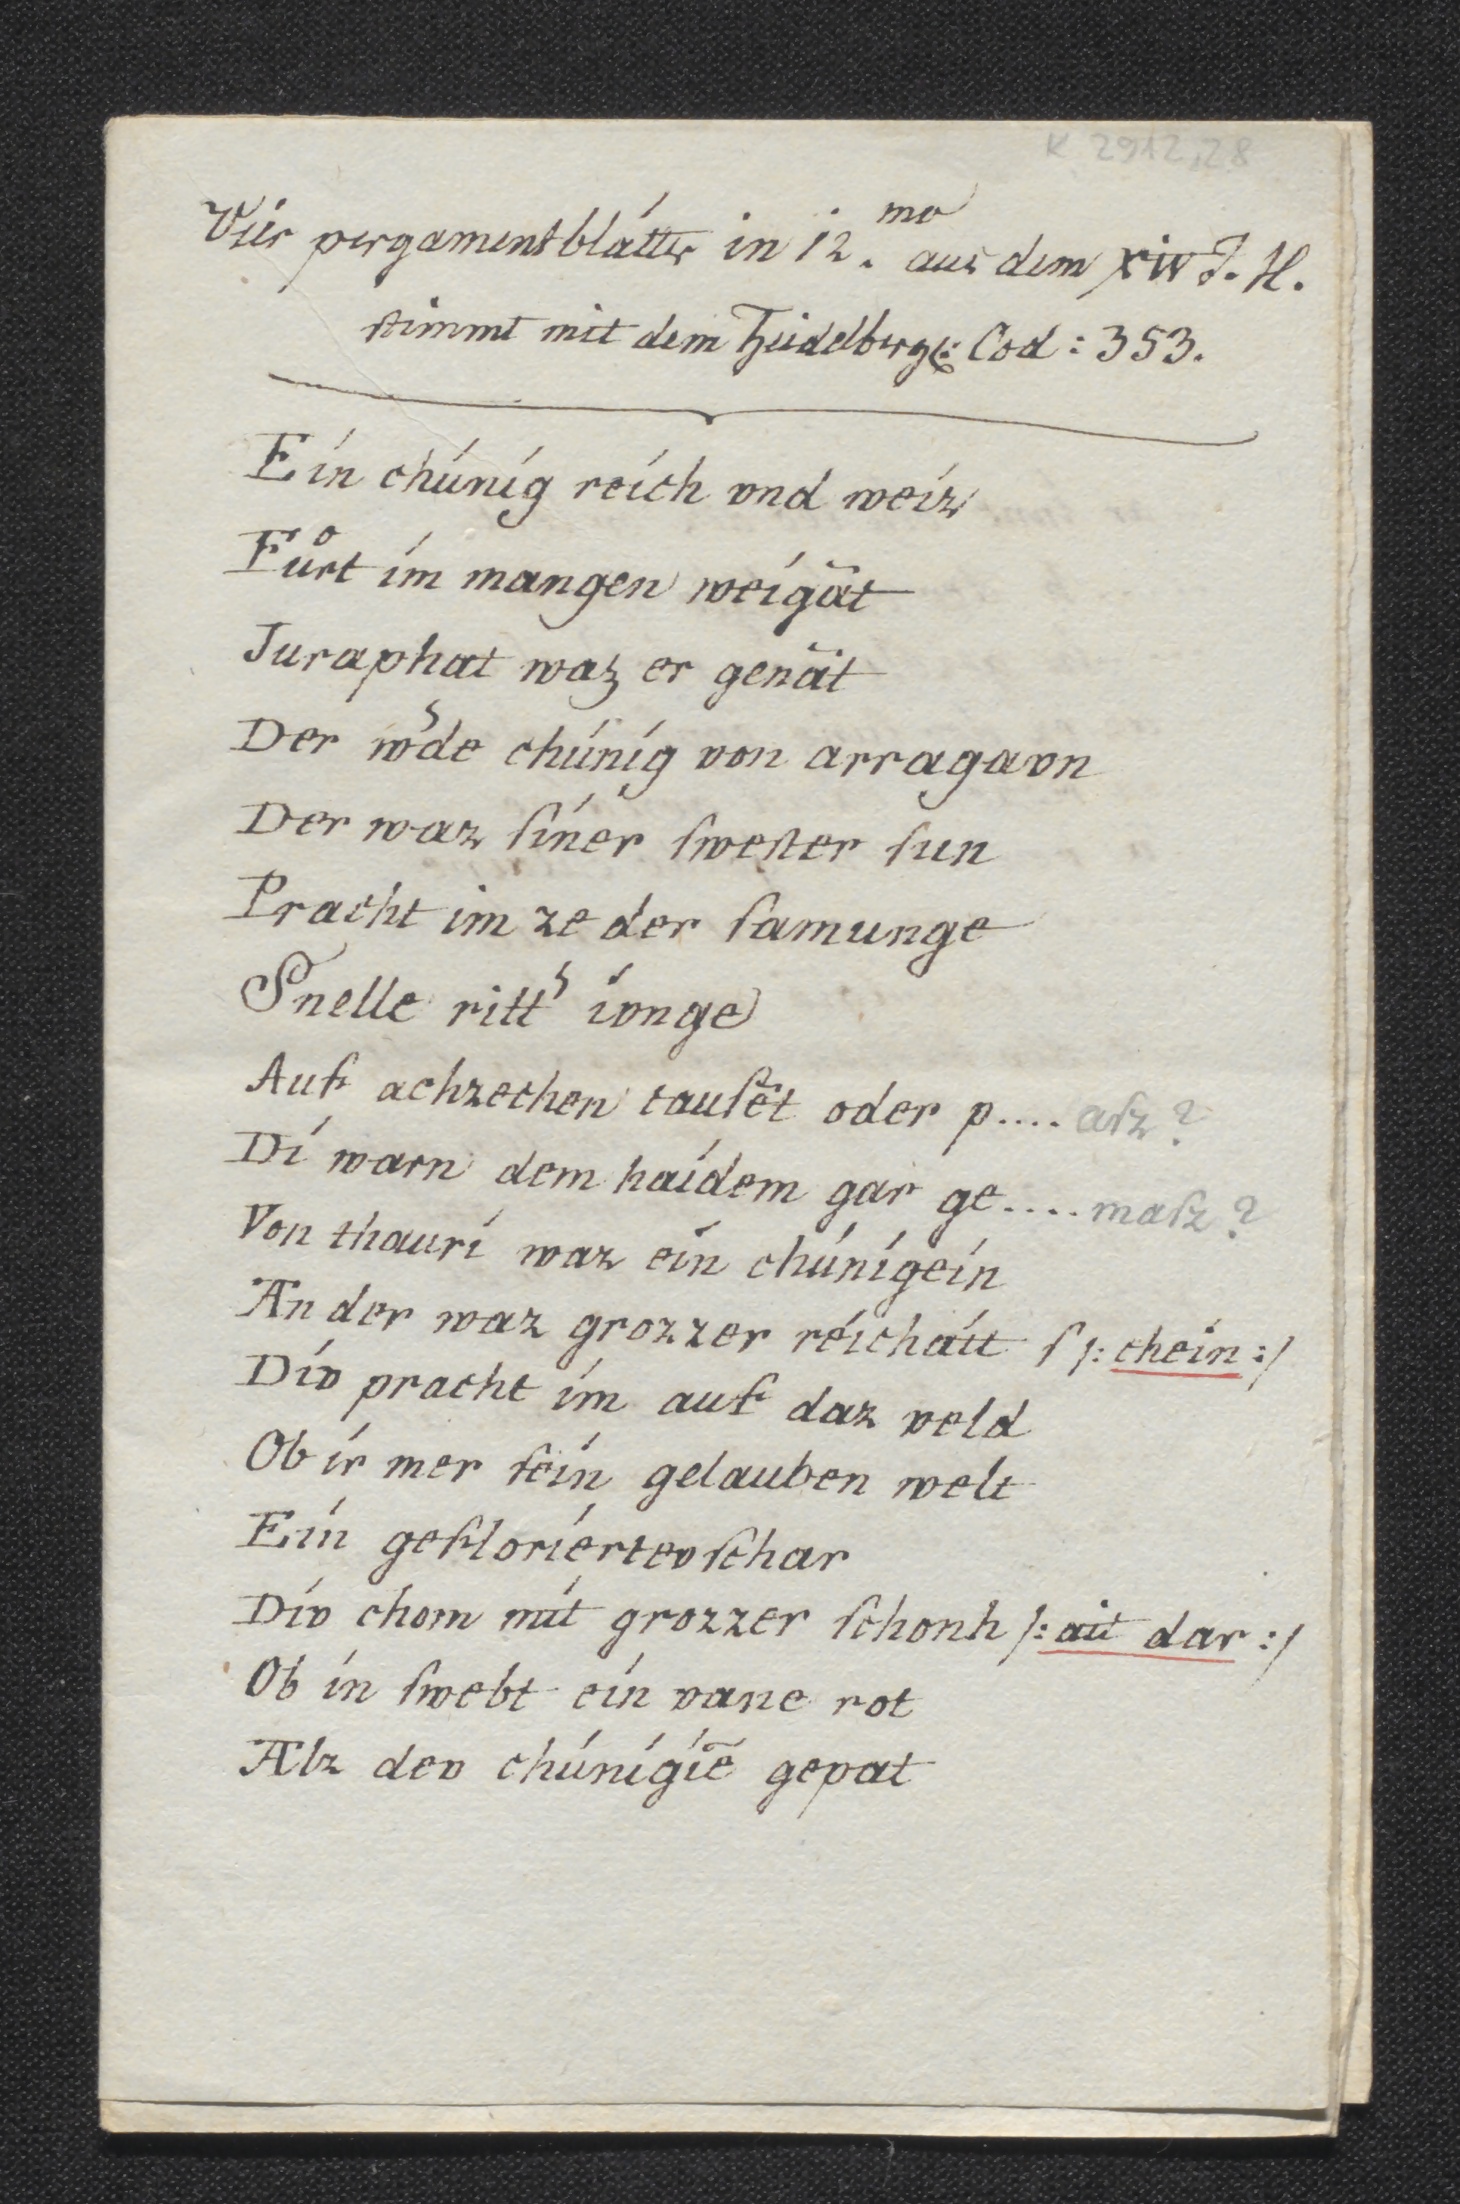 K 2912,28
Vier pergamentblätter in 12.mo aus dem XIV J. H.
stimmt mit dem Heidelberg: Cod: 353.
Ein chúnig reich vnd weiz
Fůrt im mangen weigāt
Juraphat waz er genāt
Der w͛de chúnig von arragavn
Der waz ſiner ſweſter ſun
Pracht im ze der ſamunge
Snelle ritt͛ ivnge
Auf achzechen tauſēt oder p.... aſz?
Di warn dem haidem gar ge.... maſz?
Von thauri waz ein chúnigein
An der waz grozzer reichait ſ /: chein :/
Div pracht im auf daz veld
Ob ir mer ſein gelauben welt
Ein gefloriertev ſchar
Div chom mit grozzer ſchonh /: ait dar :/
Ob in ſwebt ein vane rot
Alz dev chúnigiē gepat